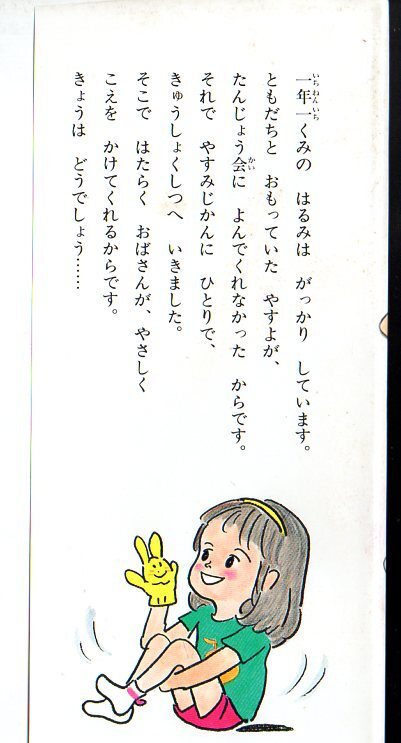 一年一くみの　はるみは　がっかり　しています。
ともだちと　おもっていた　やすよが、
たんじょう会に　よんでくれなかった　からです。
それで　やすみじかんに　ひとりで、
きゅうしょくしつへ　いきました。
そこで　はたらく　おばさんが、やさしく
こえを　かけてくれるからです。
きょうは　どうでしょう……